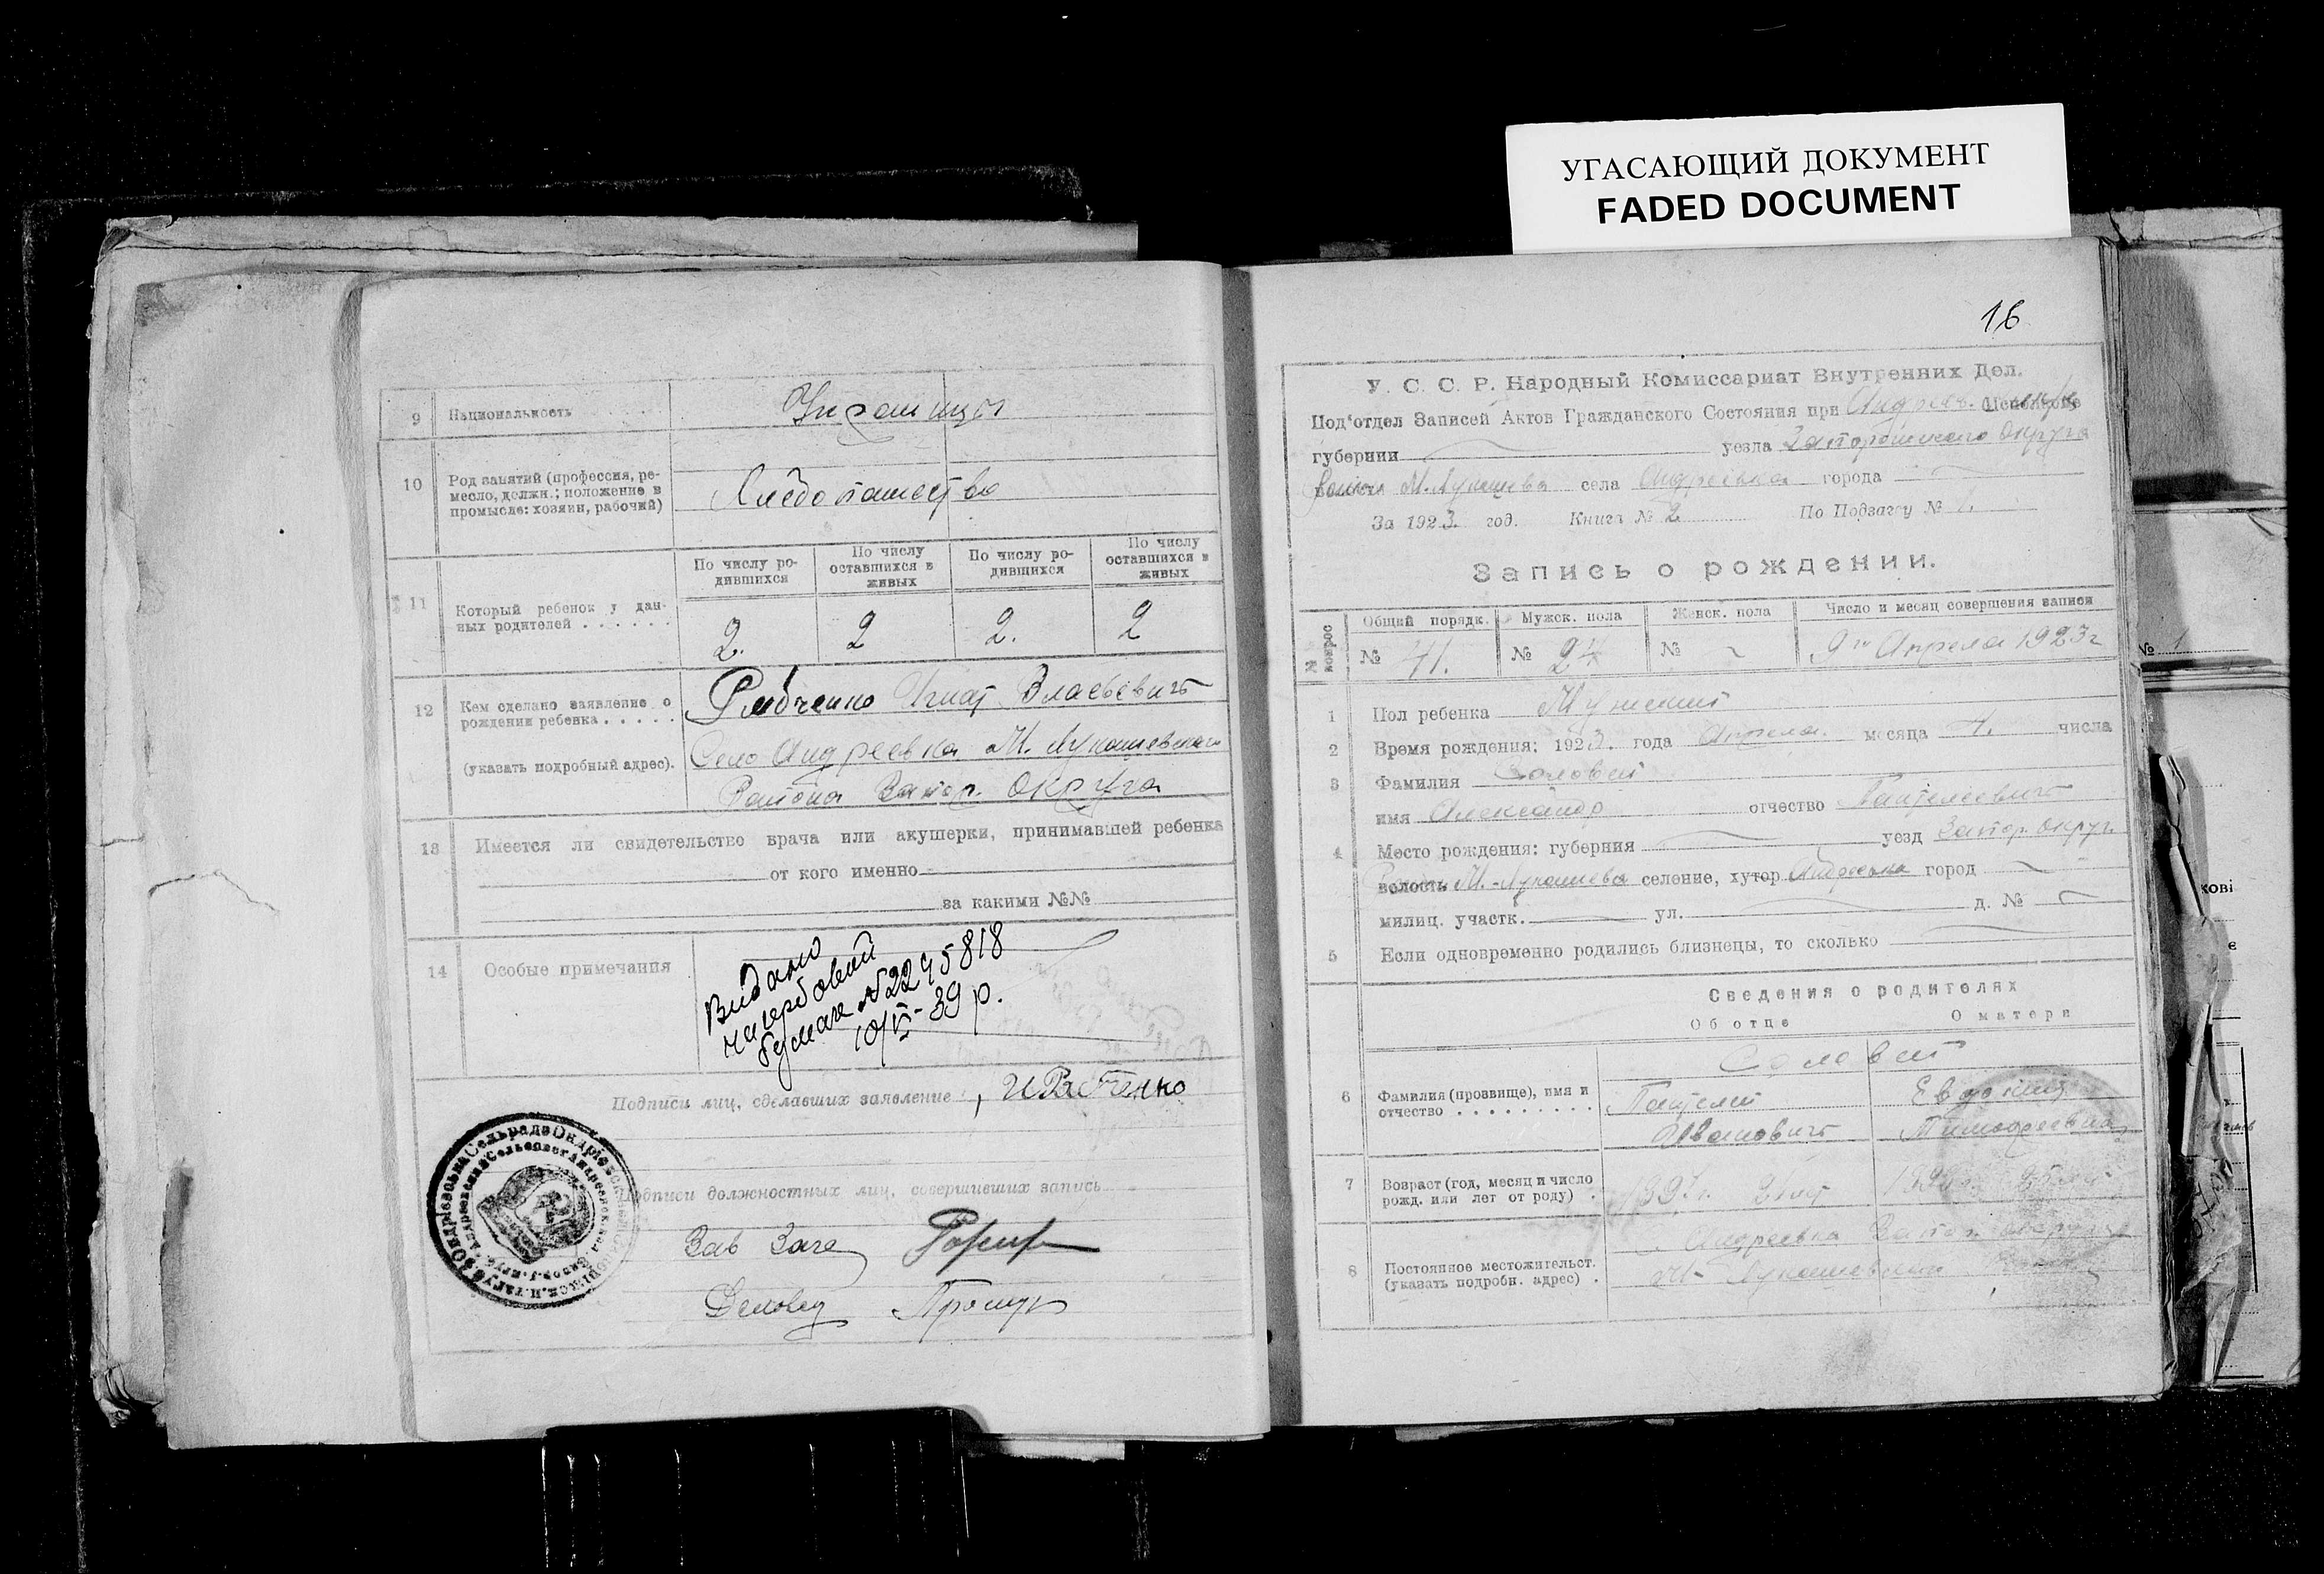 УГАСАЮЩИЙ ДОКУМЕНТ
FADED DOCUMENT
9 Национальность Украинцы
10 Род занятий (профессия, ре-
месло, должн.; положение в
промысле: хозяин, рабочий)
Хлебопашество
По числу ро-
дившихся
По числу
оставшихся в
живых
По числу ро-
дившихся
По числу
оставшихся в
живых
11 Который ребенок у дан-
ных родителей . . . . . .
2. 2 2. 2
12 Кем сделано заявление о
рождении ребенка . . . . .
Рябченко Игнат Власьевичъ
(указать подробный адрес).
Село Андреевка М. Лукашевского
Района Запор. Округа
13 Имеется ли свидетельство врача или акушерки, принимавшей ребенка
от кого именно
за какими №№
14 Особые примечания
Видано
на гербовой
бумаге №2245818
10/VI-39 р.
Подписи лиц, сделавших заявление
Подписи должностных лиц, совершивших запись
Зав Загс
16
У. С. С. Р. Народный Комиссариат Внутренних Дел.
Под'отдел Записей Актов Гражданского Состояния при Андреев.
губернии уезда Запорожского Округа
М. Лукашева села Андреевка города
За 1923. год. Книга № 2 По Подзагсу № 1.
Запись о рождении.
№ вопрос
Общий порядк.
Мужск. пола
Женск. пола
Число и месяц совершения записи
№ 41.
№ 24
№
9го Апреля 1923г
1 Пол ребенка Мужский
2 Время рождения: 1923. года Апреля. месяца 1. числа
3 Фамилия Соловей
имя Александр отчество Пантелеевичъ
4 Место рождения: губерния уезд Запор. Округ.
волость М.-Лукашева селение, хутор Андреевка город
милиц. участк. ул. д. №
5 Если одновременно родились близнецы, то сколько
Сведения о родителях
Об отце О матери
6 Фамилия (прозвище), имя и
отчество . . . . . . . . .
Соловей
Пантелей Евдокия
Ивановичъ Тимофеевна
7 Возраст (год, месяц и число
рожд. или лет от роду) .
8 Постоянное местожительст.
(указать подробн. адрес) .
Андреевка Запор. округа
М- Лукашевский